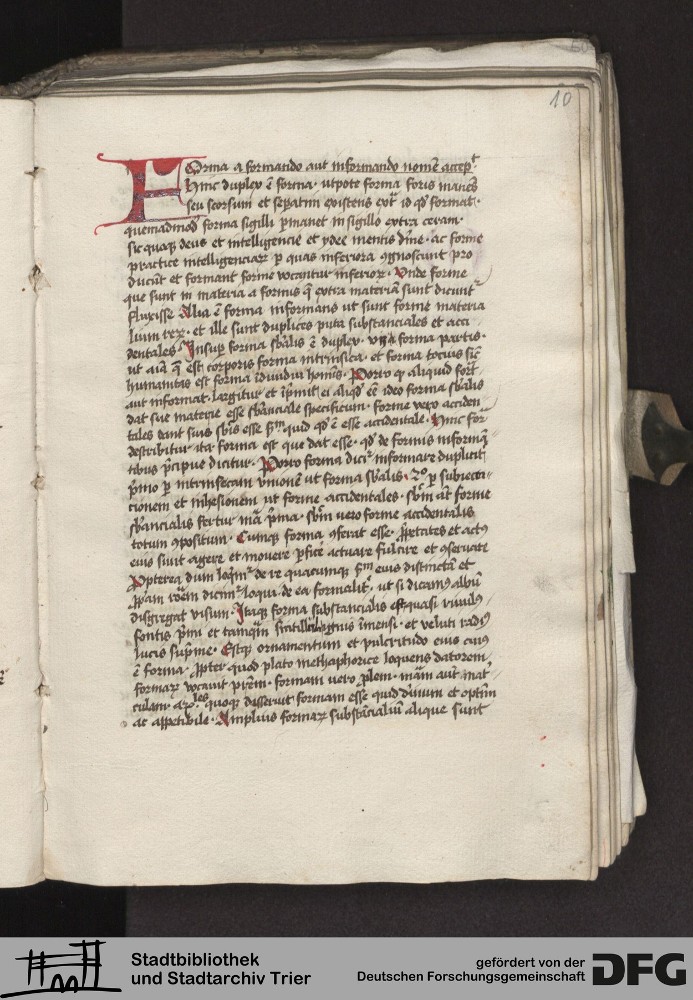 10
Forma a formando aut informando nomē accep͛t
Hinc duplex ē forma· utpote forma foris manēs
seu seorsum et sepatim existens ext͛ id qđ format·
quemadmodū forma sigilli ꝑmanet in sigillo extra ceram·
sic quoqꝫ deus et intelligencie et ydee mentis dīne· ac forme
practice intelligenciaꝝ ꝑ quas inferiora ꝯgnoscunt pro
ducūt et formant forme vocantur inferioꝝ· Unde forme
que sunt in materia a formis q̄ extra materiā sunt dicunt͛
fluxisse Alia ē forma informans ut sunt forme materia
lium reꝝ· et ille sunt duplices puta substanciales et acci
dentales· Insuꝑ forma sb̄alis ē duplex· una forma partis·
ut aīa q̄ est corporis forma intrinsica· et forma tocius sic̄
humanitas est forma īdiuidui hoīnis· Porro qꝫ aliquid format
aut informat· largitur et īprimit ei aliqđ eē ideo forma sb̄alis
dat sue materie esse sb̄anciale specificum· forme vero acciden
tales dant suis sbīs esse sm̄ quid qđ ē esse accidentale· Hinc for
describitur ita· forma est que dat esse· qđ de formis informā
tibus p̄cipue dicitur· Porro forma dicit͛ informare duplicit͛
p̄mo ꝑ intrinsecam unionē ut forma sb̄alis· 2o ꝑ subiecti
cionem et inhesionem ut forme accidentales· sbm̄ aūt forme
sb̄ancialis fertur mā p̄ma· sbm̄ vero forme accidentalis
totum ꝯpositum· Cumqꝫ forma ꝯferat esse· ꝓp̄etates et actꝰ
eius sunt agere et movere ꝑfice actuare fulcire et ꝯservare
Propterea dum loqim͛ de re quacumqꝫ sm̄ eius distinctā et
ꝓp̄am rōem dicim͛ loqui de ea formalit͛· ut si dicamꝰ albū
disgregat visum· Itaqꝫ forma substancialis est quasi rivulꝰ
fontis p̄mi et tamquā scintilla ignis īmensi· et veluti radiꝰ
lucis sup̄me· Estqꝫ ornamentum et pulcritudo eius cuiꝰ
ē forma· ꝓpter quod plato methaphorice loquens datorem
formaꝝ vocavit pr̄em· formam vero ꝓlem· mām aut mat
culam· arꝭles quoqꝫ disseruit formam esse quid divinū et optim
ac appetibile· Amplius formaꝝ substancialiū alique sunt
Stadtbibliothek
und Stadtarchiv Trier
gefördert von der
Deutschen Forschungsgemeinschaft
DFG